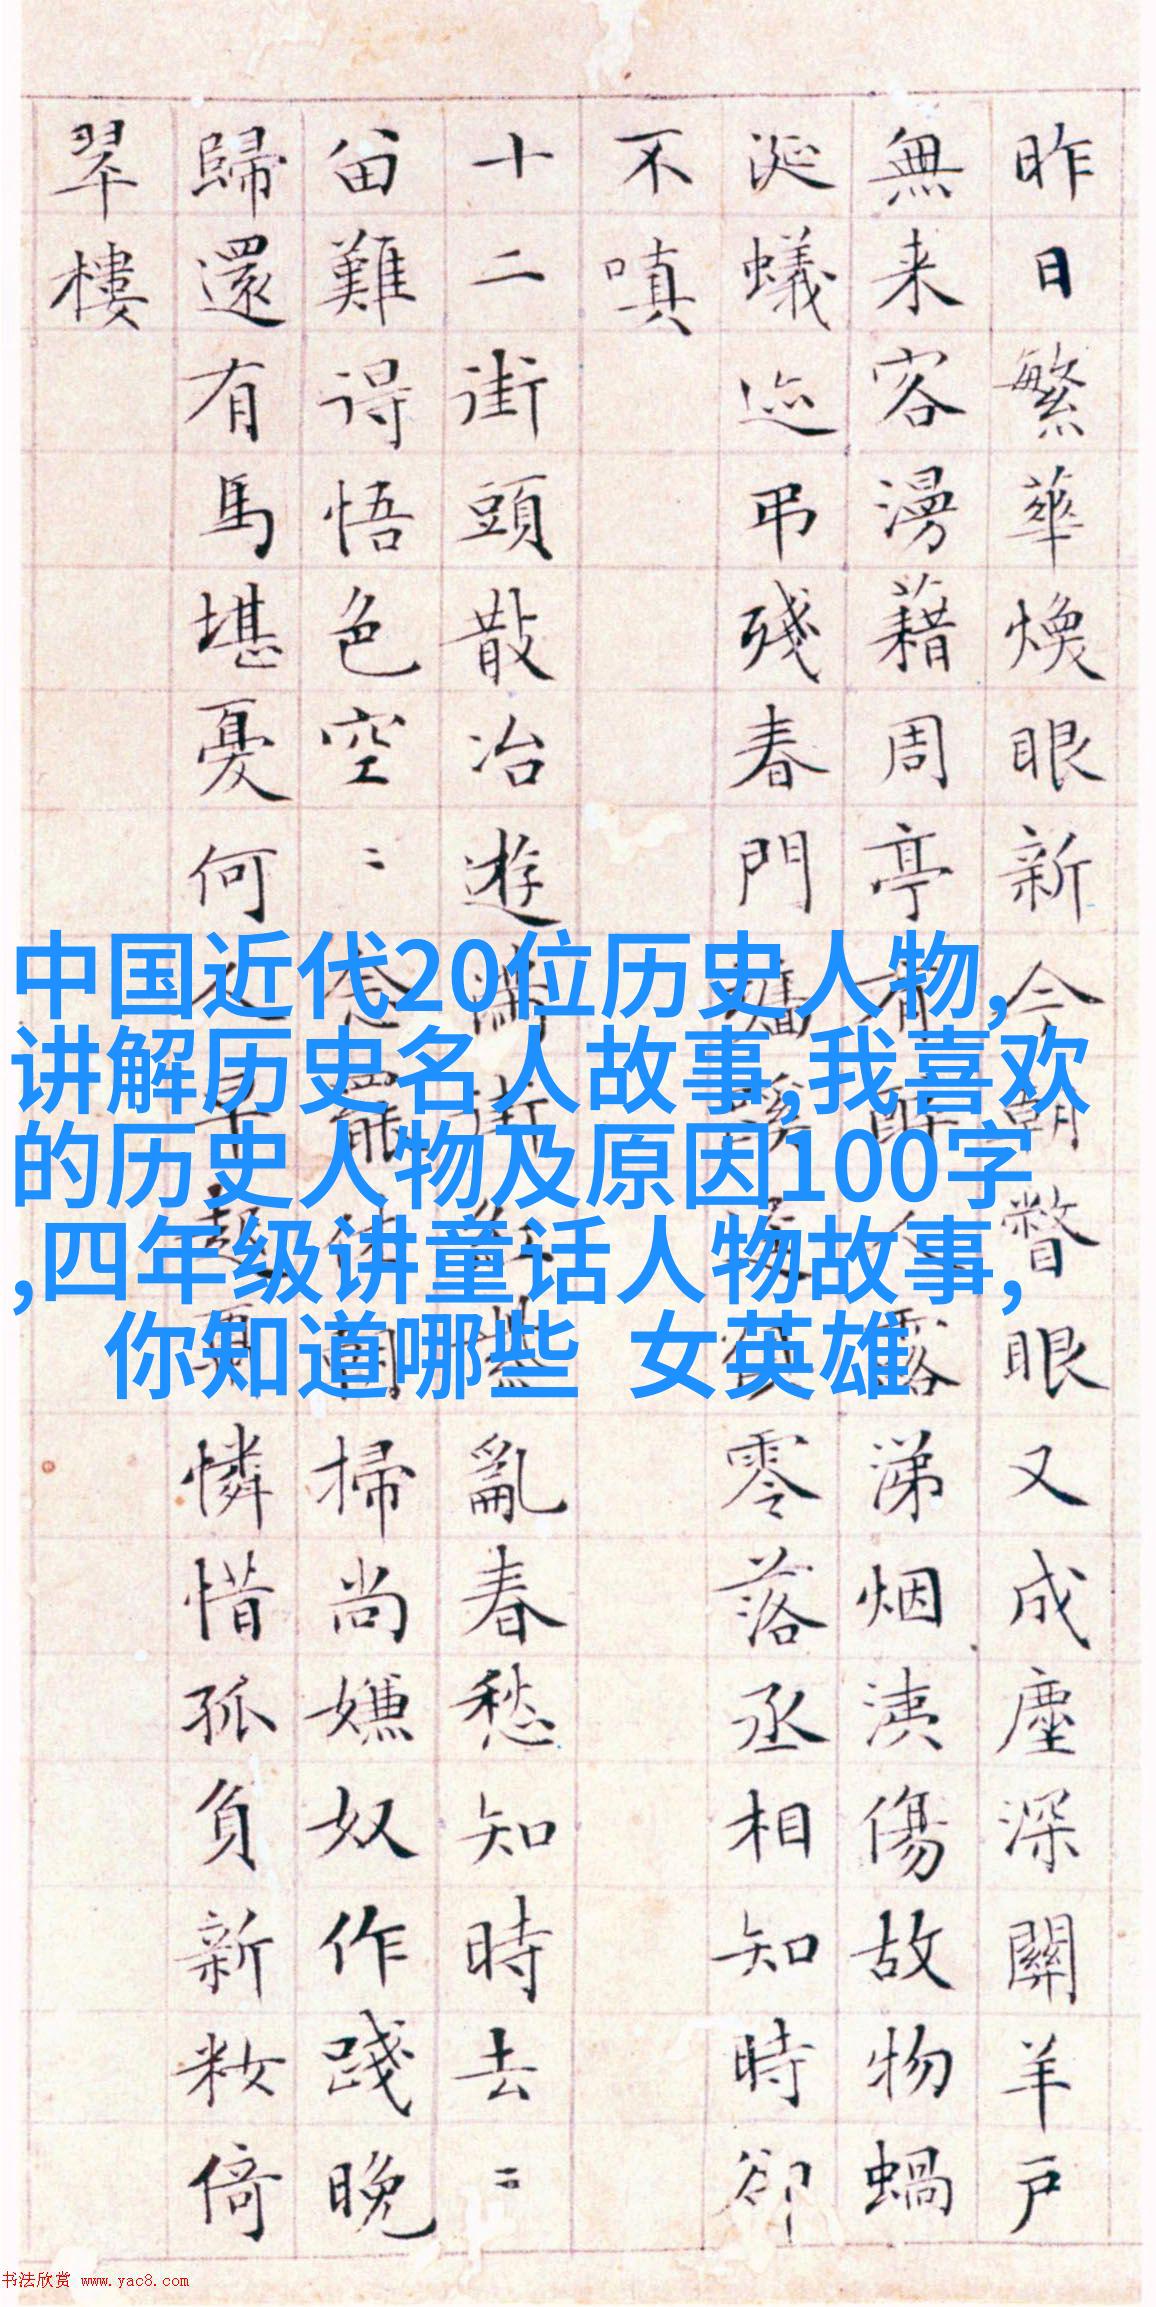 中国近代20位历史人物,
讲解历史名人故事,我喜欢
的历史人物及原因100字
,四年级讲童话人物故事,
你知道哪些 女英雄
昨日繁華煥眼新今朝瞥眼又成塵深關羊戸
無来客漫藉周亭涕烟洟傷故物蝸
涎蟻迹弔残春門零落丞相知時卻
不嗔
十二街頭散冶遊滿街亂春愁知時去〻
留難得悟色空〻掃尚嫌奴作踐晚
歸還有馬堪憂何憐惜孤負新妝倚
翠樓
书法欣赏 www.yac8.com